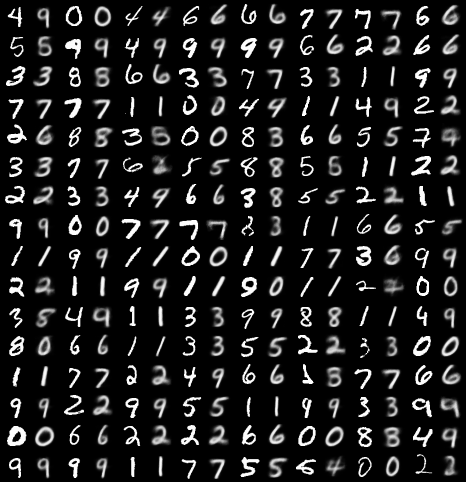 4 9 0 0 4 4 6 6 6 6 7 7 7 7 6 6
5 5 9 9 4 9 9 9 9 9 6 6 2 2 6 6
3 3 8 8 6 6 3 3 7 7 3 3 1 1 9 9
7 7 7 7 1 1 0 0 4 9 1 1 4 9 2 2
2 6 8 8 3 5 0 0 8 3 6 6 5 5 7 9
3 3 7 7 6 5 5 8 8 5 5 1 1 2 2
2 2 3 3 4 9 6 6 3 8 5 5 2 2 1 1
9 9 0 0 7 7 7 7 3 3 1 1 6 6 5 5
1 1 9 9 1 1 0 0 1 1 7 7 3 6 9 9
2 2 1 1 9 9 1 1 9 0 1 1 2 0 0
3 5 4 9 1 1 3 3 9 9 8 8 1 1 4 9
8 0 6 6 1 1 3 3 5 5 2 2 3 3 0 0
1 1 7 7 2 2 4 9 6 6 1 3 7 7 6 6
9 9 2 2 9 9 5 5 1 1 9 9 3 3 9 9
0 0 6 6 2 2 2 2 6 6 0 0 8 8 4 9
9 9 9 9 1 1 7 7 5 5 5 4 0 0 2 2